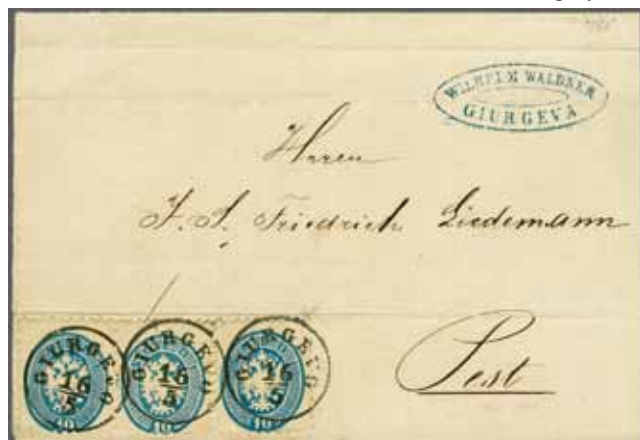 WILHELM WALDNER
GIURGEVA
Herren
J. S. Friedrich Liedemann
Pest
GIURGEVO
16
5
10
GIURGEVO
16
5
10
GIURGEVO
16
5
10